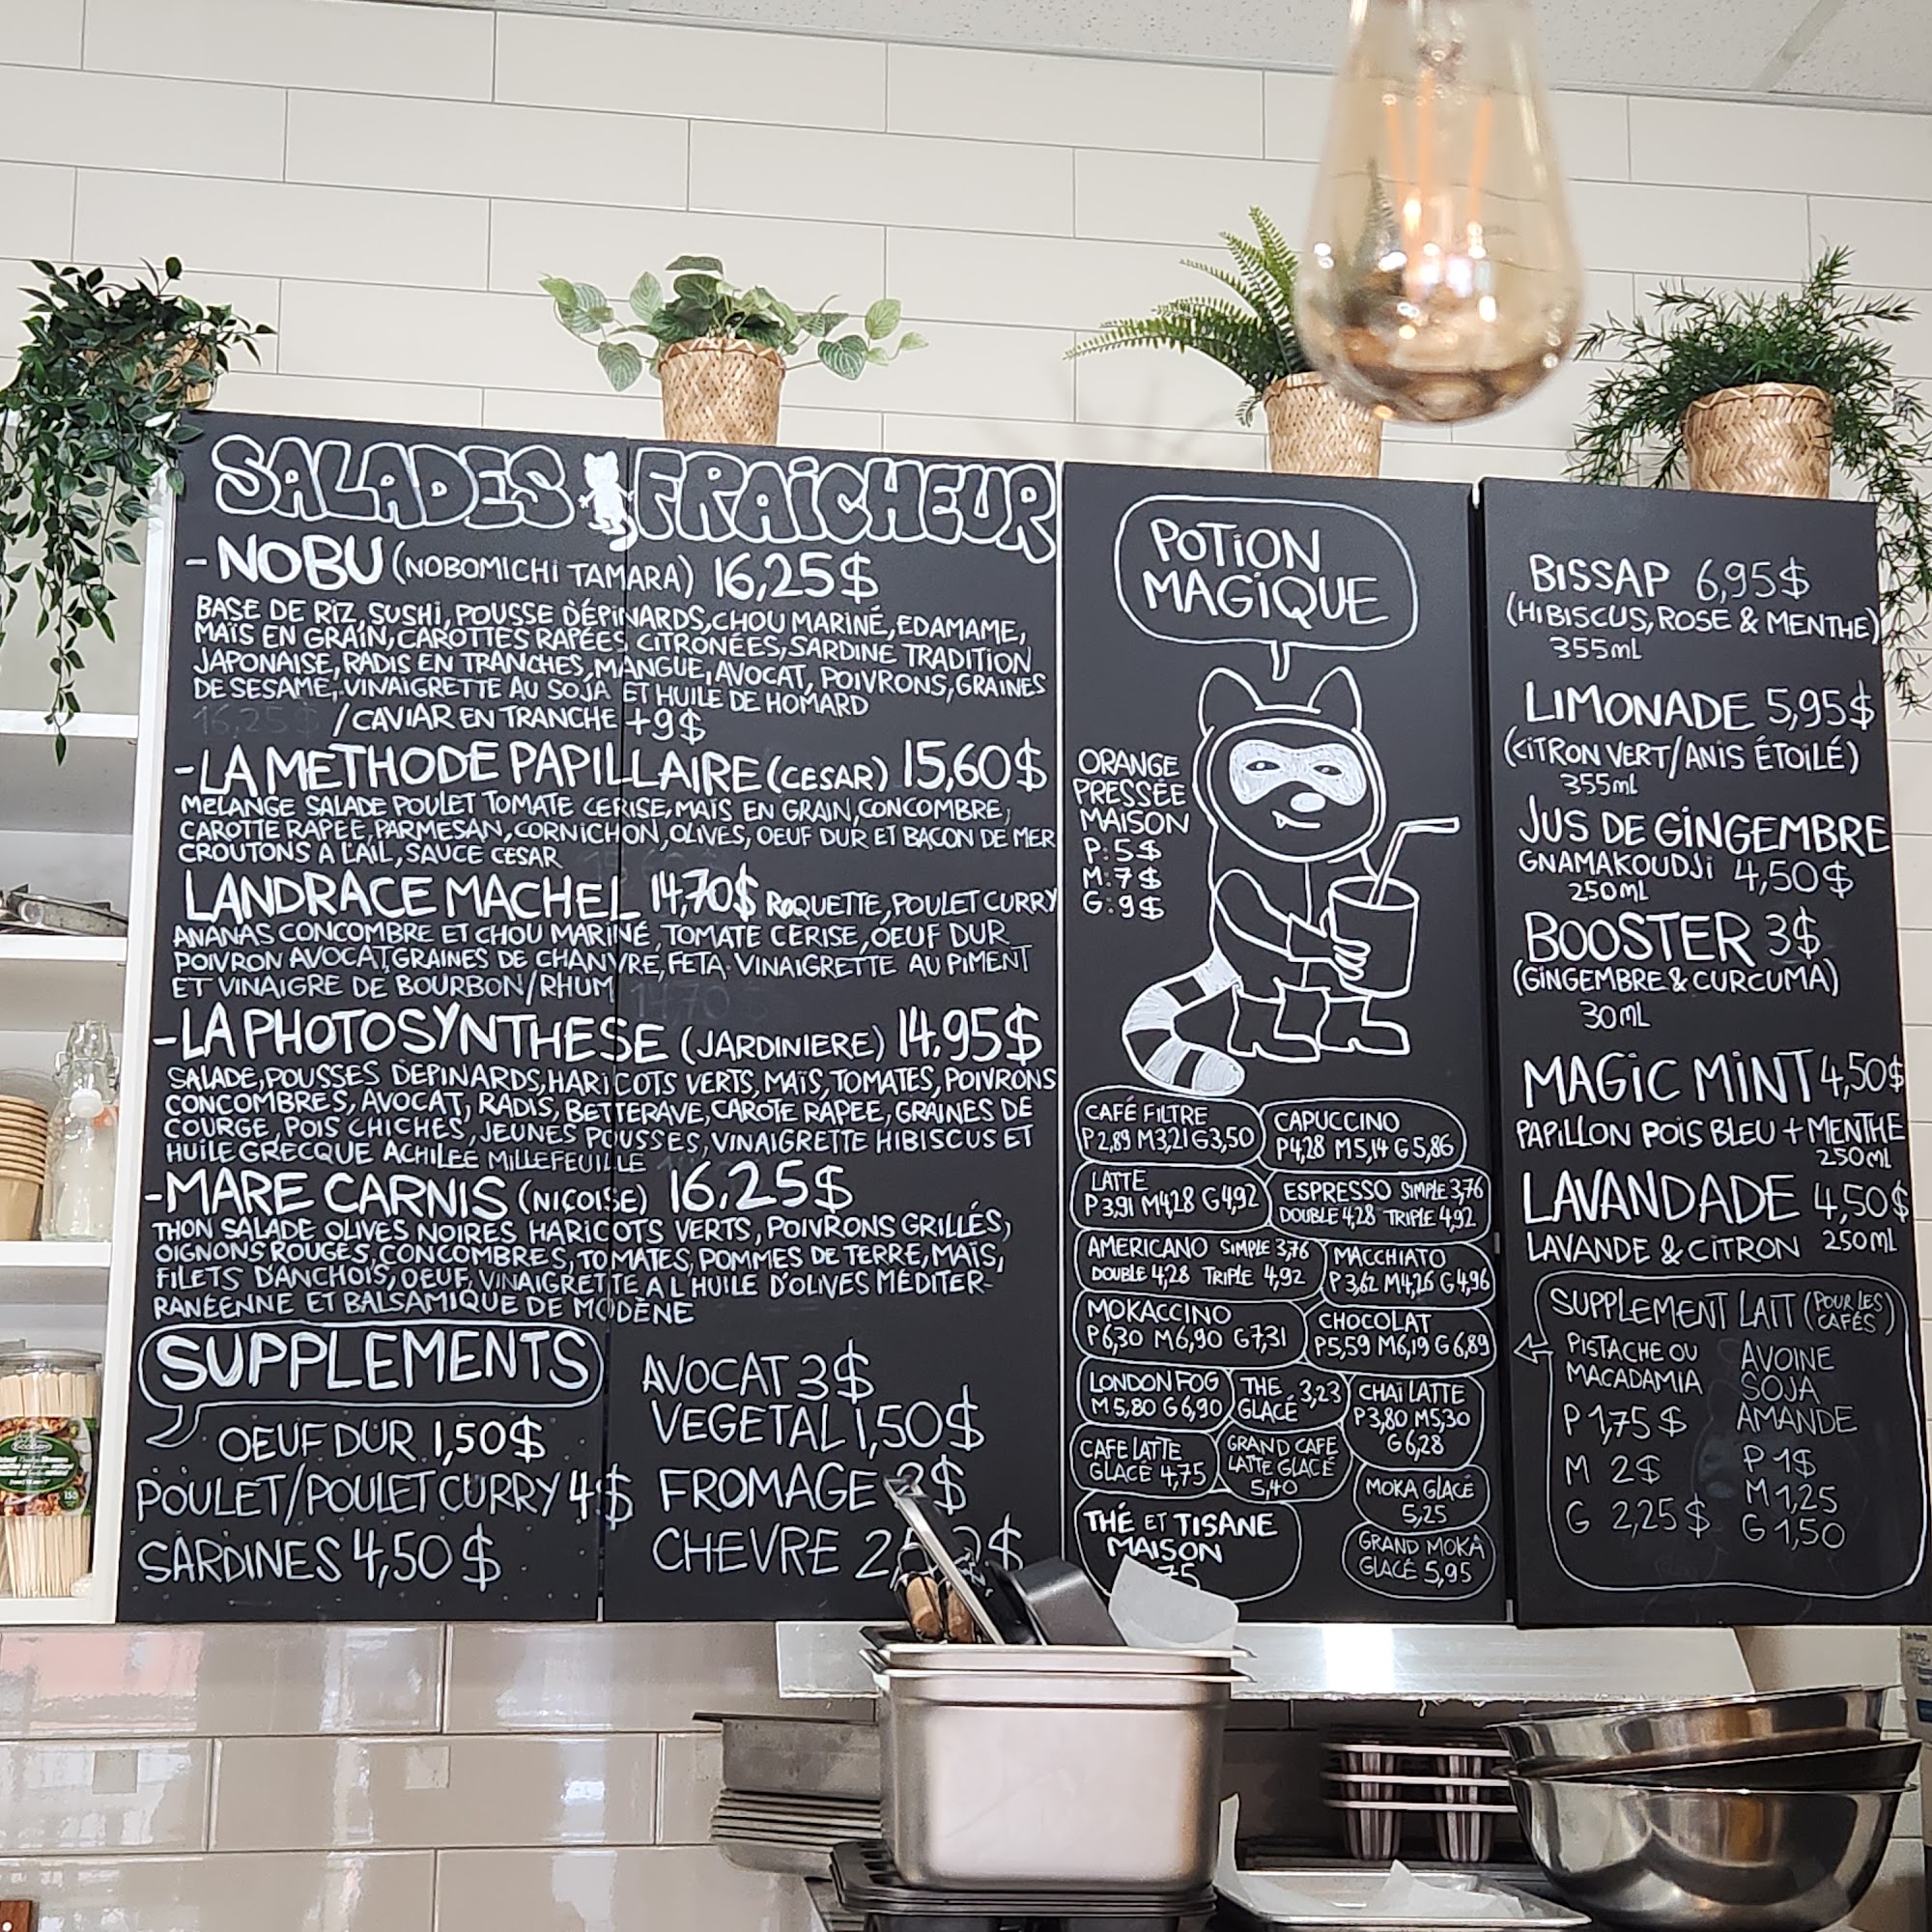 SALADES FRAÎCHEUR
-NOBU (NOBOMICHI TAMARA) 16,25$
BASE DE RIZ, SUSHI, POUSSE DÉPINARDS, CHOU MARINÉ, EDAMAME,
MAÏS EN GRAIN, CAROTTES RAPÉES CITRONÉES, SARDINE TRADITION
JAPONAISE, RADIS EN TRANCHES, MANGUE, AVOCAT, POIVRONS, GRAINES
DE SESAME, VINAIGRETTE AU SOJA ET HUILE DE HOMARD
16,25$ / CAVIAR EN TRANCHE +9$
-LA METHODE PAPILLAIRE (CESAR) 15,60$
MELANGE SALADE POULET TOMATE CERISE, MAÏS EN GRAIN, CONCOMBRE,
CAROTTE RAPEE, PARMESAN, CORNICHON, OLIVES, OEUF DUR ET BACON DE MER
CROUTONS A L'AIL, SAUCE CESAR
LANDRACE MACHEL 14,70$ ROQUETTE, POULET CURRY
ANANAS CONCOMBRE ET CHOU MARINÉ, TOMATE CERISE, OEUF DUR
POIVRON AVOCAT, GRAINES DE CHANVRE, FETA. VINAIGRETTE AU PIMENT
ET VINAIGRE DE BOURBON/RHUM 14,70$
-LA PHOTOSYNTHESE (JARDINIERE) 14.95$
SALADE, POUSSES DEPINARDS, HARICOTS VERTS, MAÏS, TOMATES, POIVRONS
CONCOMBRES, AVOCAT, RADIS, BETTERAVE, CAROTE RAPEE, GRAINES DE
COURGE, POIS CHICHES, JEUNES POUSSES, VINAIGRETTE HIBISCUS ET
HUILE GRECQUE ACHILEE MILLEFEUILLE
-MARE CARNIS (NIÇOISE) 16,25$
THON SALADE OLIVES NOIRES HARICOTS VERTS, POIVRONS GRILLÉS,
OIGNONS ROUGES, CONCOMBRES, TOMATES, POMMES DE TERRE, MAÏS,
FILETS D'ANCHOIS, OEUF, VINAIGRETTE A L'HUILE D'OLIVES MÉDITER-
RANÉENNE ET BALSAMIQUE DE MODÈNE
SUPPLEMENTS
OEUF DUR 1,50$
POULET/POULET CURRY 4$
SARDINES 4,50$
AVOCAT 3$
VEGETAL 1,50$
FROMAGE $
CHEVRE
POTION
MAGIQUE
ORANGE
PRESSÉE
MAISON
P:5$
M:7$
G:9$
CAFÉ FILTRE
P 2,89 M3,21 G3,50
CAPUCCINO
P4,28 M5,14 G5,86
LATTE
P 3,91 M4,28 G4,92
ESPRESSO SIMPLE 3,76
DOUBLE 4,28 TRIPLE 4,92
AMERICANO SIMPLE 3,76
DOUBLE 4,28 TRIPLE 4,92
MACCHIATO
P 3,62 M4,26 G4,96
MOKACCINO
P6,30 M6,90 G7,31
CHOCOLAT
P5,59 M6,19 G6,89
LONDON FOG
M 5,80 G6,90
THE
GLACÉ 3,23
CHAI LATTE
P3,80 M5,30
G 6,28
CAFE LATTE
GLACÉ 4,75
GRAND CAFE
LATTE GLACÉ
5,40
MOKA GLACÉ
5,25
THÉ ET TISANE
MAISON
75
GRAND MOKA
GLACÉ 5,95
BISSAP 6,95$
(HIBISCUS, ROSE & MENTHE)
355mL
LIMONADE 5,95$
(CITRON VERT/ANIS ÉTOILÉ)
355mL
JUS DE GINGEMBRE
GNAMAKOUDJI 4,50$
250mL
BOOSTER 3$
(GINGEMBRE & CURCUMA)
30mL
MAGIC MINT 4,50$
PAPILLON POIS BLEU + MENTHE
250mL
LAVANDADE 4,50$
LAVANDE & CITRON 250mL
SUPPLEMENT LAIT (POUR LES CAFÉS)
PISTACHE OU
MACADAMIA
P 1,75$
M 2$
G 2,25$
AVOINE
SOJA
AMANDE
P 1$
M 1,25
G 1,50